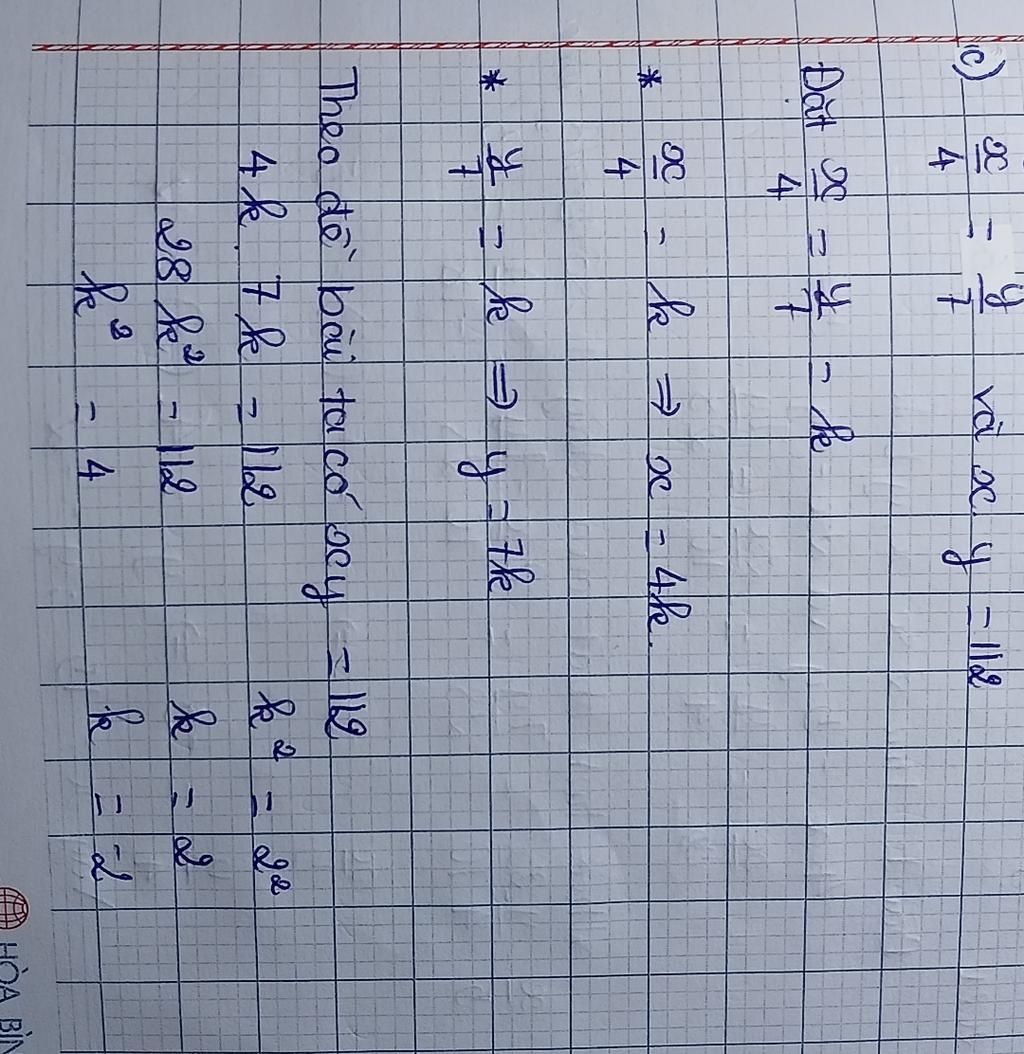 c) x/4 = y/7 và x.y = 112
Đặt x/4 = y/7 = k
* x/4 = k ⇒ x = 4k.
* y/7 = k ⇒ y = 7k
Theo đề bài ta có xy = 112
4k.7k = 112
28k² = 112
k² = 4
k² = 2²
k = 2
k = -2